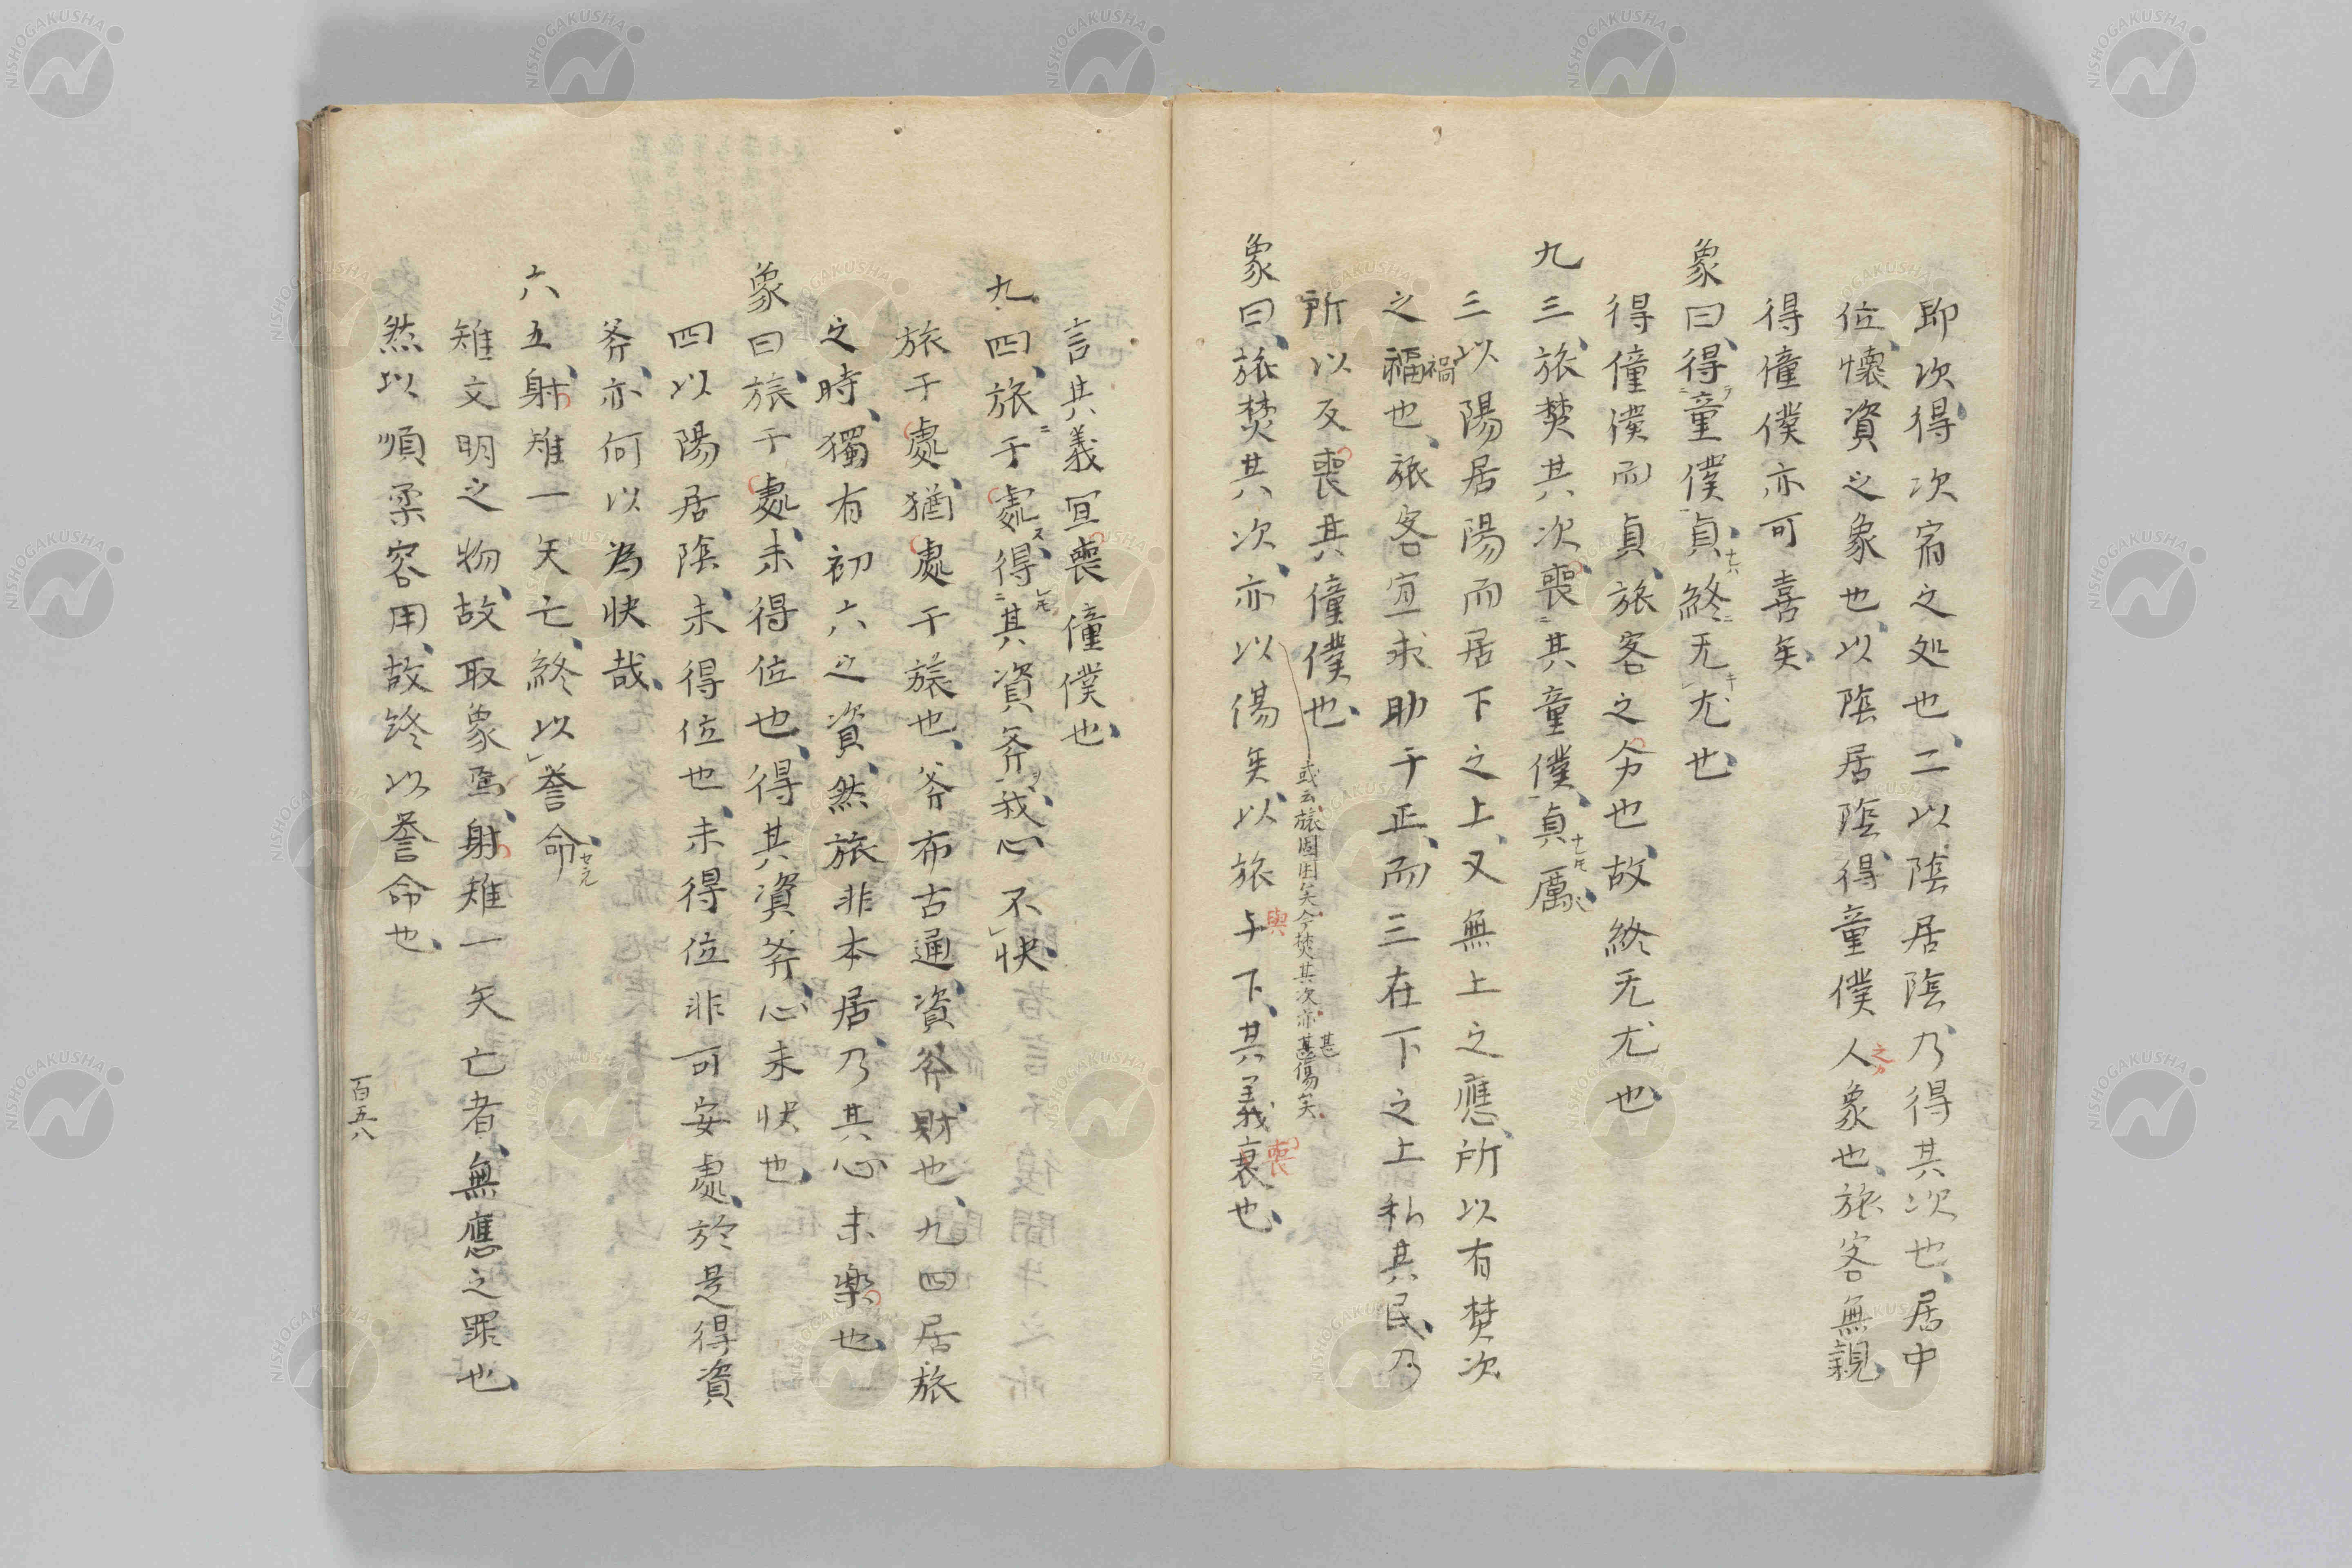 即次得次宿之処也二以陰居陰乃得其次也居中
位懐資之象也以陰居陰得童僕人象也旅客無親
之カ
得僮僕亦可喜矣
象曰得童僕貞終无尤也
得僮僕而貞旅客之分也故終无尤也
九三旅焚其次喪其童僕貞厲
三以陽居陽而居下之上又無上之應所以有焚次
之福也旅客宜求助于正而三在下之上私其民乃
禍
所以反喪其僮僕也
或云旅固困矣今焚其次亦甚傷矣
甚
象曰旅焚其次亦以傷矣以旅与下其義衰也
與
喪
言其義宜喪僮僕也
九四旅于處得其資斧我心不快
旅于處猶處于旅也斧布古通資斧財也九四居旅
之時獨有初六之資然旅非本居乃其心未楽也
象曰旅于處未得位也得其資斧心未快也
四以陽居陰未得位也未得位非可安處於是得資
斧亦何以為快哉
六五射雉一矢亡終以誉命
雉文明之物故取象焉射雉一矢亡者無應之罪也
然以順柔容用故终以誉命也
百五八
NISHOGAKUSHA